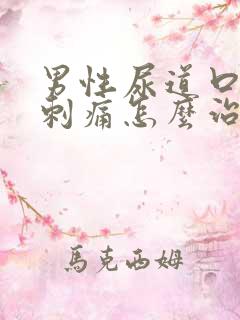 男性尿道口
刺痛怎麼治
馬克西姆